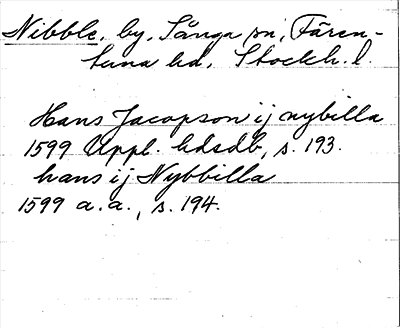 Nibble, by, Sånga sn, Fären-
tuna hd, Stockh. l.
Hans Jacopson ij nybilla
1599 Uppl. hdsdb, s. 193.
hans ij Nybbilla
1599 a.a., s. 194.